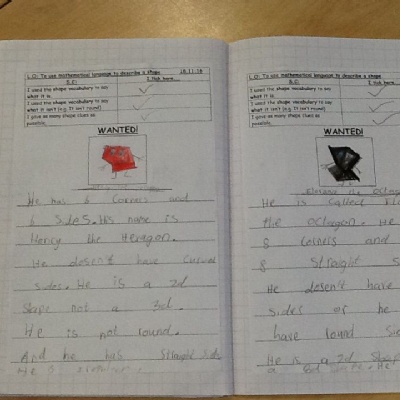 L.O: To use mathematical language to describe a shape 18.11.16
S.C: I tick here...
I used the shape vocabulary to say what it is.
I used the shape vocabulary to say what it isn't (e.g. It isn't round)
I gave as many shape clues as possible.
WANTED!
He has 6 Corners and
6 sides. His name is
Henry the Hexagon.
He dosen't have Curved
sides. He is a 2d
Shape not a 3d.
He is not round.
And he has Straight Sides
He is
L.O: To use mathematical language to describe a shape
S.C: I tick here...
I used the shape vocabulary to say what it is.
I used the shape vocabulary to say what it isn't (e.g. It isn't round)
I gave as many shape clues as possible.
WANTED!
the octagon
He is Called
the octagon. He
8 Corners and
8 Straight
He dosen't have
sides or he
have round
He is a 2d Shape